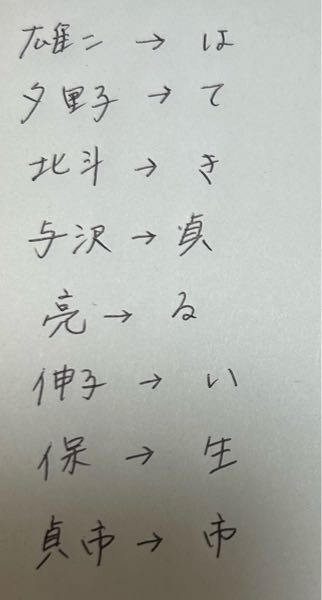 雄二 → は
夕里子 → て
北斗 → き
与沢 → 貞
亮 → る
伸子 → い
保 → 生
貞市 → 市